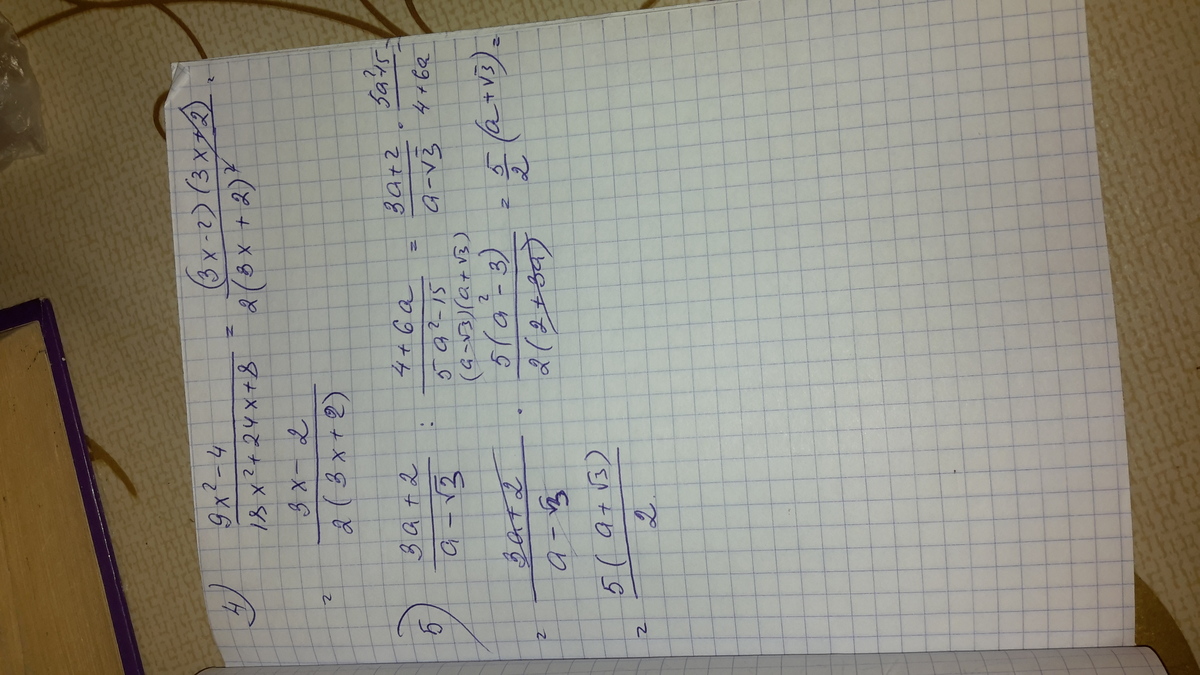 4) (9x² - 4)/(18x² + 24x + 8) = ((3x - 2)(3x + 2))/(2(3x + 2)²) =
= (3x - 2)/(2(3x + 2))
5) (3a + 2)/(a - √3) : (4 + 6a)/(5a² - 15) = (3a + 2)/(a - √3) · (5a² - 15)/(4 + 6a) =
(a - √3)(a + √3)
= (3a + 2)/(a - √3) · (5(a² - 3))/(2(2 + 3a)) = 5/2 (a + √3) =
= (5(a + √3))/2